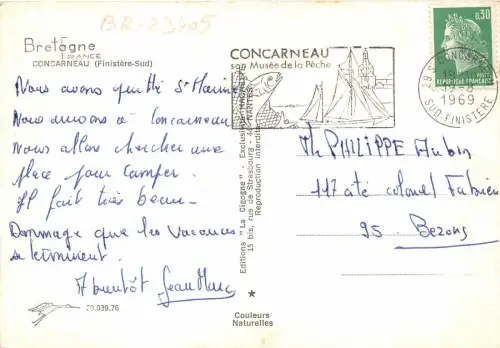 BR-23705
Bretagne
FRANCE
CONCARNEAU (Finistère-Sud)
Nous avons quitté St
Nous arrivons à Concarneau
Nous allons chercher une
place pour camper.
Il fait très beau.
Dommage que les vacances
se terminent.
A bientôt Jean Marc
29.039.76
CONCARNEAU
son Musée de la Pêche
29 S CONCARNEAU
1969
SUD-FINISTERE
0,30
POSTES
REPUBLIQUE FRANÇAISE
Editions "La Cigogne" - Exclusivité HACHETTE
15 bis, rue de Strasbourg - 44-NANTES
Reproduction interdite
Mr PHILIPPE Aubin
117 cité colonel Fabien
95 Bezons
Couleurs
Naturelles